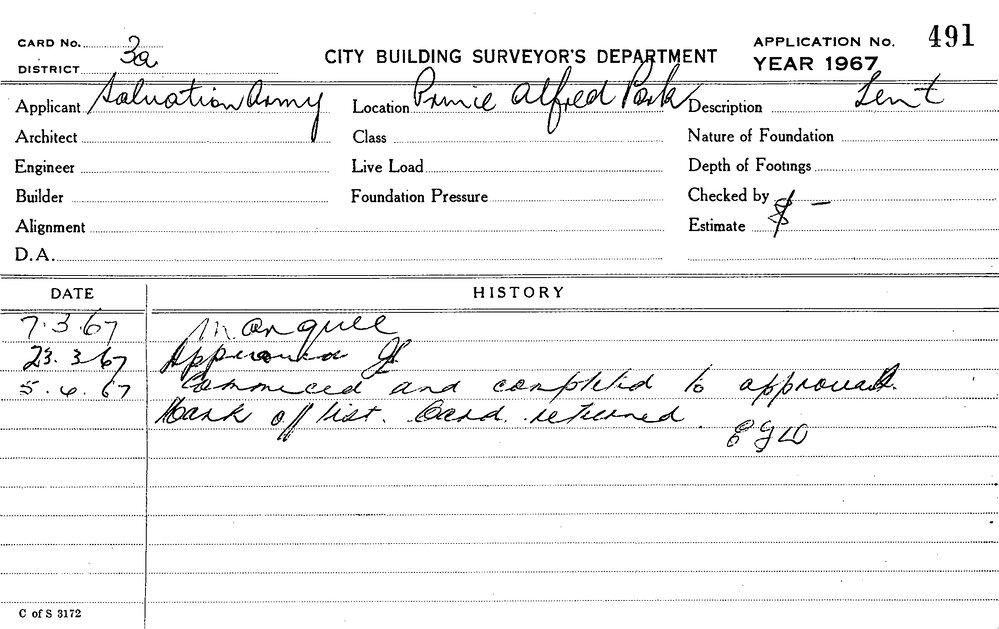 CARD No. 3a
DISTRICT
CITY BUILDING SURVEYOR'S DEPARTMENT
APPLICATION No. 491
YEAR 1967
Applicant Salvation Army Location Prince Alfred Park Description Tent
Architect Class Nature of Foundation
Engineer Live Load Depth of Footings
Builder Foundation Pressure Checked by
Alignment Estimate $ –
D.A.
DATE HISTORY
7.3.67 Marquee
23.3.67 Approved
5.4.67 Commenced and completed to approval.
Mark off list. Card returned.
EGW
C of S 3172